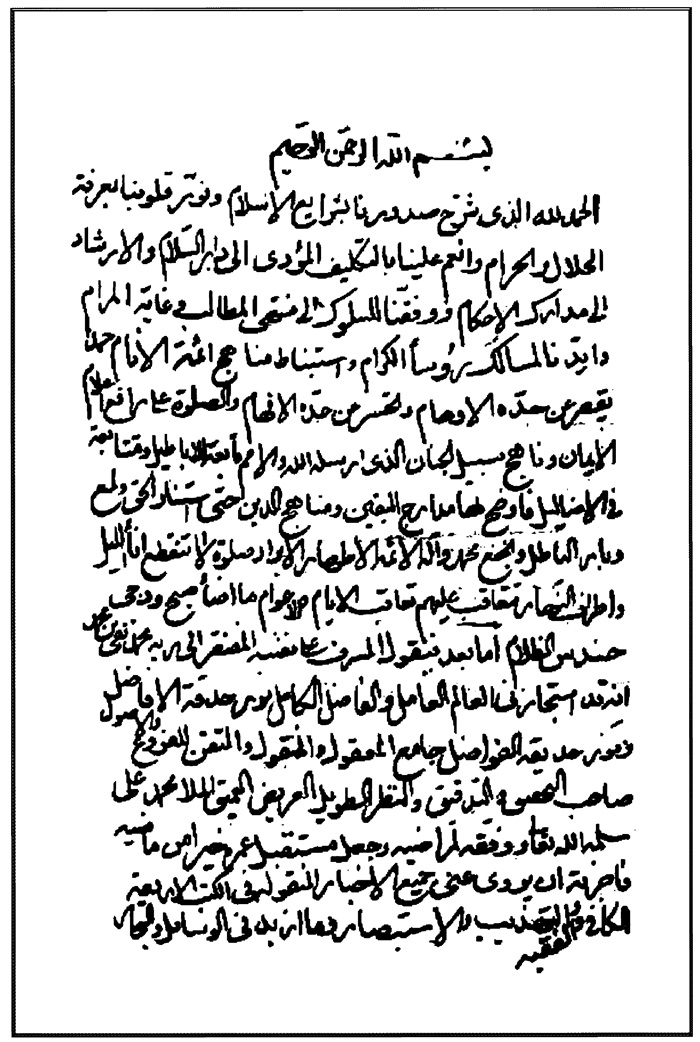 بسم الله الرحمن الرحيم
الحمد لله الذى شرح صدورنا بشرايع الإسلام ونور قلوبنا بمعرفة
الحلال والحرام وانعم علينا بالتكليف المؤدى الى دار السلام والارشاد
الى مدارك الاحكام ووفقنا للسلوك الى منتهى المطالب وغاية المرام
وايدنا لمسالك رؤسأ الكرام واستنباط مناهج ائمة الأنام حمدا
يقصر عن حده الاوهام وتحسر عن حده الافهام والصلوة على رافع اعلام
الايمان وناهج سبيل الجنان الذى ارسله الله والامم تابعة الاباطيل ومتتابعة
فى الاضاليل فاوضح لها مدارج اليقين ومناهج الدين حتى استنار الحق ولمع
الباطل محمد وآله الأئمة الاطهار الابرار صلوة لا تنقطع انأ الليل
واطراف النهار تتعاقب عليهم تعاقب الايام والاعوام ما اضأ صبح ودجى
حندس الظلام أما بعد فيقول المسرف على نفسه المفتقر الى ربه محمد تقى بن محمد
انه قد استجازنى العالم العامل والفاضل الكامل نور حدقة الافاضل
ونور حديقة الفواضل جامع المعقول والمنقول والمتقن للفروع والاصول
صاحب التحقيق والتدقيق والنظر الطويل العريض العميق الملا محمد على
سلمه الله تعالى ووفقه لمراضيه وجعل مستقبل عمره خيرا من ماضيه
فاجزته ان يروى عنى جميع الاخبار المنقولة فى الكتب الاربعة
الكافى والفقيه والتهذيب والاستبصار وما ازيد فى الوسايل والبحار